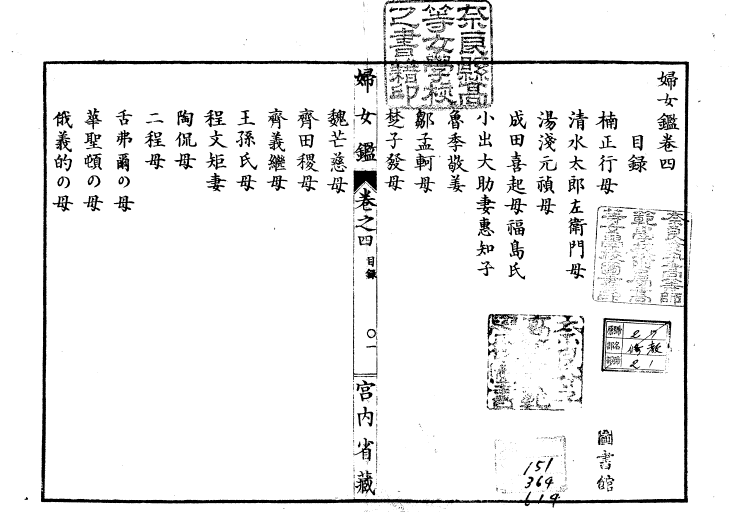 奈良縣高
等女學校
之書籍印
婦女鑑卷四
目録
楠正行母
清水太郎左衛門母
湯淺元禎母
成田喜起母福島氏
小出大助妻惠知子
魯季敬姜
鄒孟軻母
楚子發母
婦女鑑
卷之四
目録
〇一
宮内省藏
魏芒慈母
齊田稷母
齊義繼母
王孫氏母
程文矩妻
陶侃母
二程母
舌弗爾の母
華聖頓の母
俄義的の母
圖書館
151
364
614